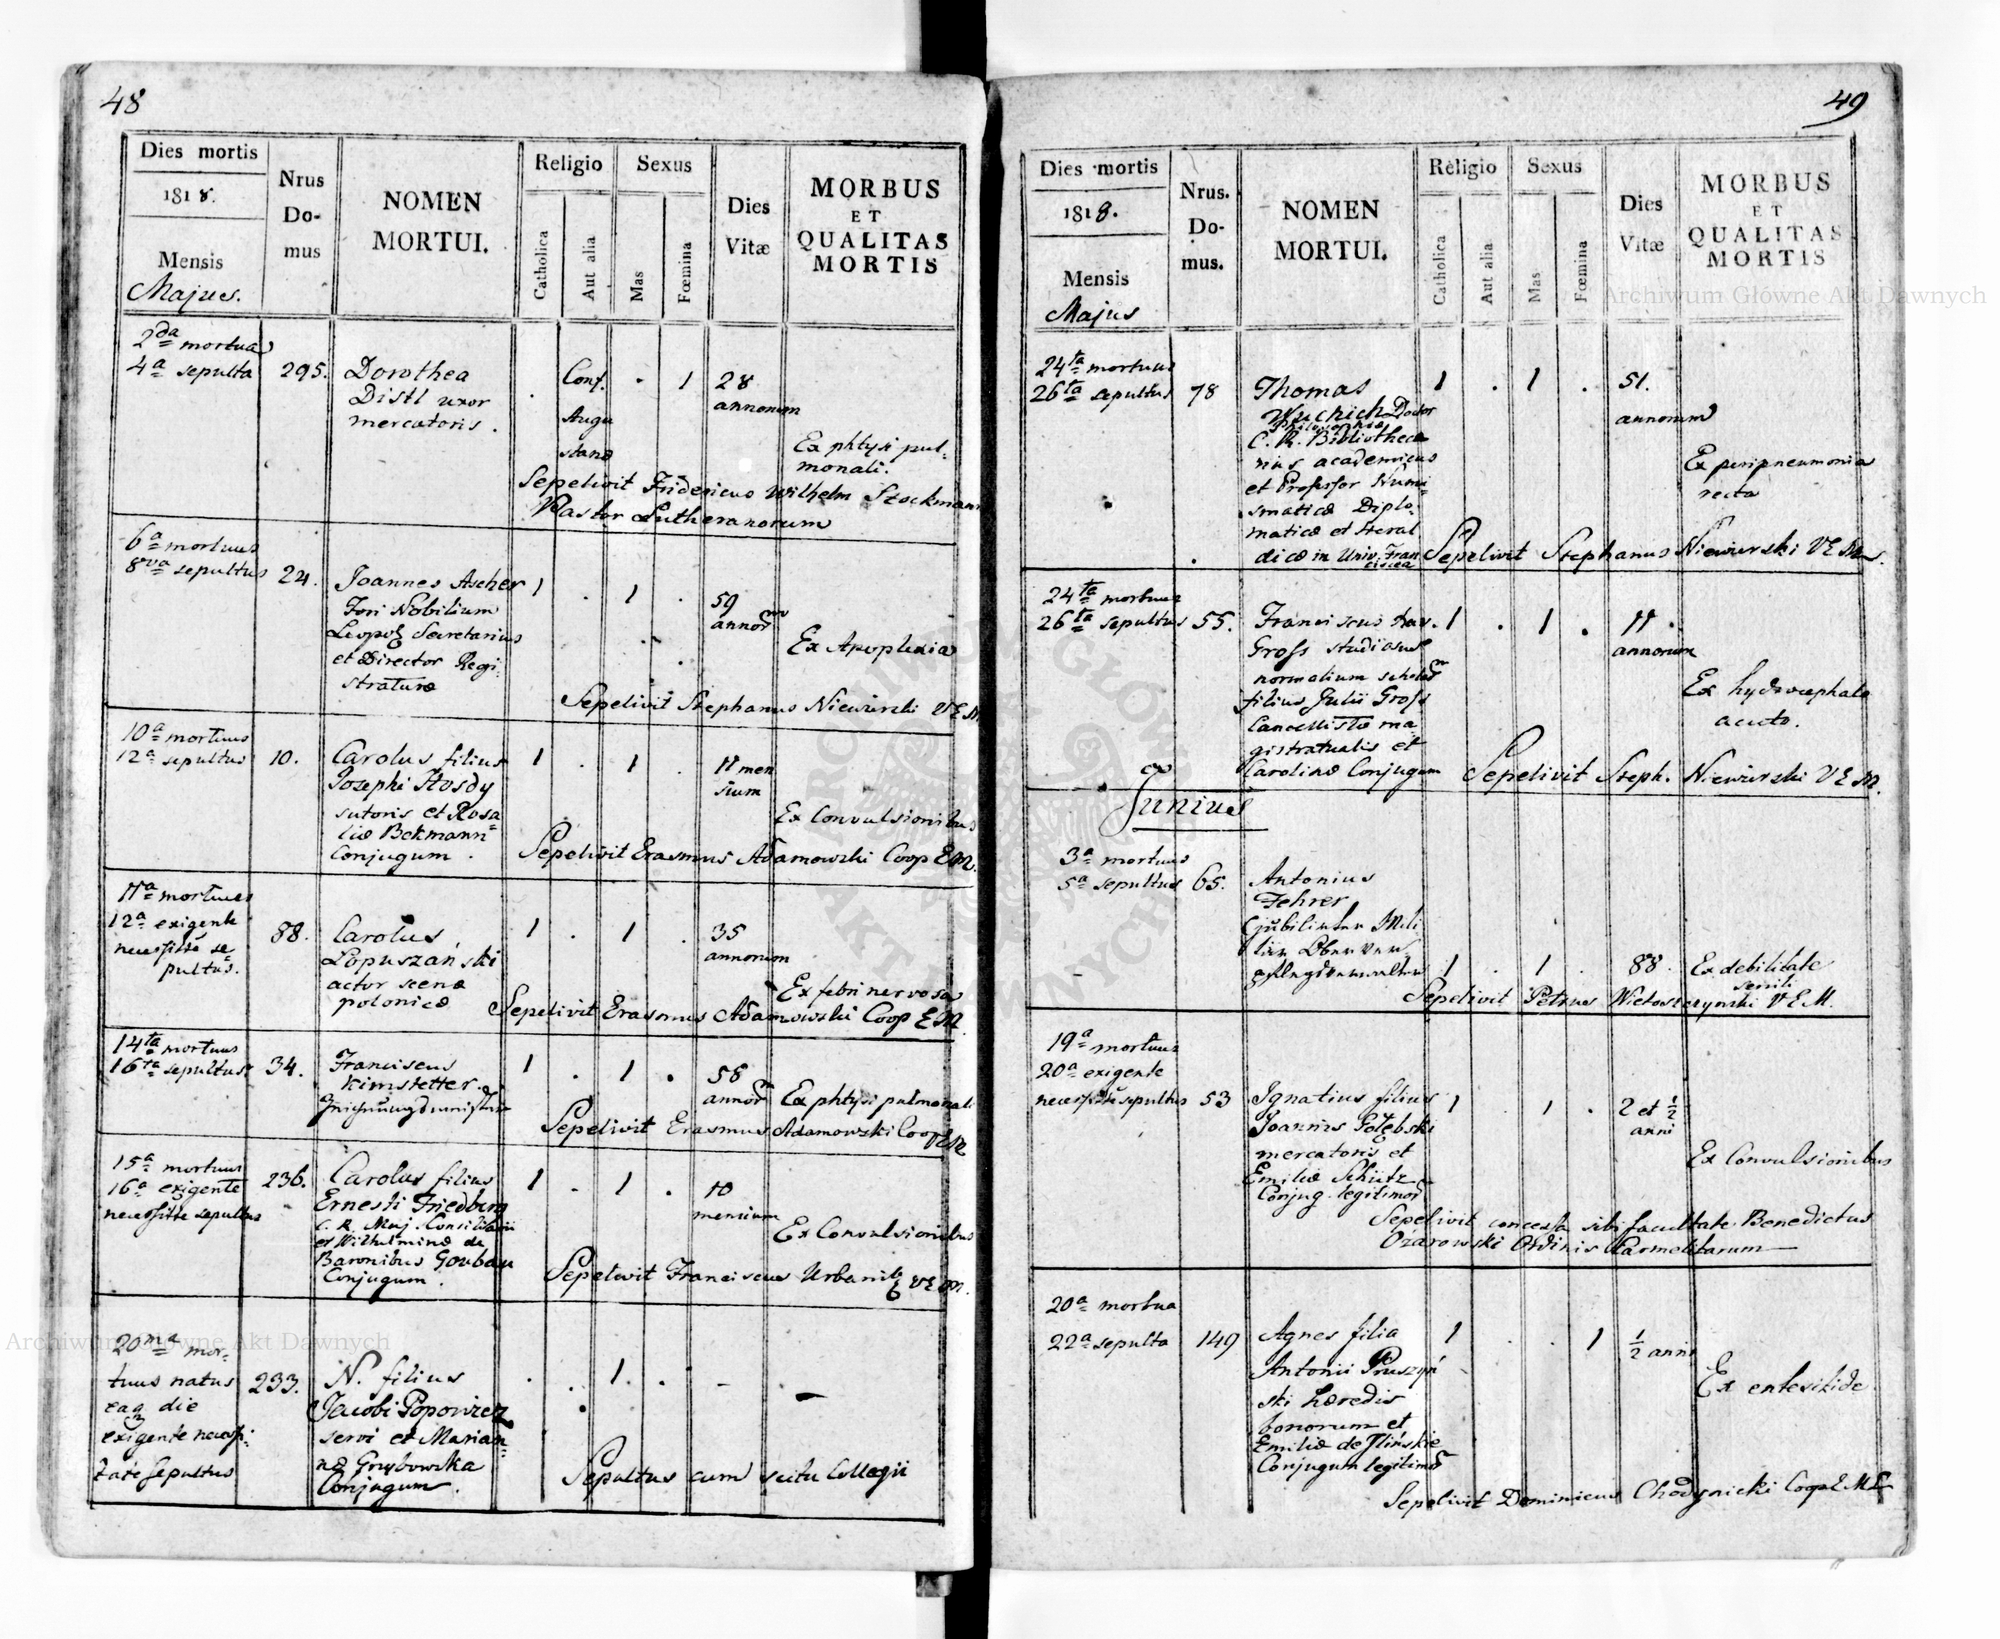 48
Dies mortis
1818.
Mensis
Majus.
Nrus
Do-
mus
NOMEN
MORTUI.
Religio
Catholica
Aut alia
Sexus
Mas
Fœmina
Dies
Vitæ
MORBUS
ET
QUALITAS
MORTIS
2da mortua
4a sepulta
295.
Dorothea
Distl uxor
mercatoris.
Conf.
Augu
stana
1
28
annorum
Ex phtysi pul-
monali.
Sepelivit Fridericus Wilhelm Stockmann
Pastor Lutheranorum
6a mortuus
8va sepultus
24.
Joannes Ascher
Fori Nobilium
Leopol Secretarius
et Director Regi-
straturæ
1
1
59
annor
Ex Apoplexia
Sepelivit Stephanus Niewierski VEM
10a mortuus
12a sepultus
10.
Carolus filius
Josephi Hosdy
sutoris et Rosa
liæ Bekmann
Conjugum.
1
1
11 men
sium
Ex Convulsionibus
Sepelivit Erasmus Adamowski Coop EM.
11a mortuus
12a exigente
necessite se-
pultus.
88.
Carolus
Lopuszański
actor scenæ
polonicæ
1
1
35
annorum
Ex febri nervosa
Sepelivit Erasmus Adamowski Coop EM.
14ta mortuus
16ta sepultus
34.
Franciscus
Kimstetter
1
1
58
annor
Ex phtysi pulmonali
Sepelivit Erasmus Adamowski Coop EM
15a mortuus
16a exigente
necessite sepultus
236.
Carolus filius
Ernesti Friedberg
C. R. Maj Consiliarii
et Wilhelminæ de
Baronibus Goubau
Conjugum.
1
1
10
mensium
Ex Convulsionibus
Sepelivit Franciscus Urbani VEM.
20ma mor-
tuus natus
eaq die
exigente necessi-
tate sepultus
233.
N. filius
Jacobi Popowicz
servi et Marian-
næ Grzybowska
Conjugum.
1.
-
-
Sepultus cum scitu Collegii
49
Dies mortis
1818.
Mensis
Majus
Nrus.
Do-
mus.
NOMEN
MORTUI.
Religio
Catholica
Aut alia
Sexus
Mas
Fœmina
Dies
Vitæ
MORBUS
ET
QUALITAS
MORTIS
24ta mortuus
26ta sepultus
78
Thomas
Wuchich Doctor
Philosophiæ
C. R. Bibliotheca
rius academicus
et Professor Numi-
smaticæ Diplo-
maticæ et Heral
dicæ in Univ. Fran
ciscea
1
1
51.
annorum
Ex peripneumonia
recta
Sepelivit Stephanus Niewierski VEM.
24ta mortuus
26ta sepultus
55.
Franciscus Xav.
Gross studiosus
normalium schola
filius Julii Gross
Cancellistæ ma
gistratualis et
Carolinæ Conjugum
1
1
11
annorum
Ex hydrocephalo
acuto.
Sepelivit Steph. Niewierski VEM.
Junius
3a mortuus
5a sepultus
65.
Antonius
Fehrer
1
1
88
Ex debilitate
senili
Sepelivit Petrus VEM.
19a mortuus
20a exigente
necessite sepultus
53
Ignatius filius
Joannis Gołębski
mercatoris et
Emiliæ Schütz
Conjug. legitimor
1
1
2 et ½
anni
Ex Convulsionibus
Sepelivit concessa sibi facultate Benedictus
Ozarowski Ordinis Carmelitarum
20a mortua
22a sepulta
149
Agnes filia
Antonii Pruszyń
ski Hæredis
bonorum et
Emiliæ de Ilińskie
Conjugum legitimor
1
1
½ anni
Ex enteritide
Sepelivit Dominicus Chodynicki Coop EML
Archiwum Główne Akt Dawnych
Archiwum Główne Akt Dawnych
ARCHIWUM GŁÓWNE AKT DAWNYCH